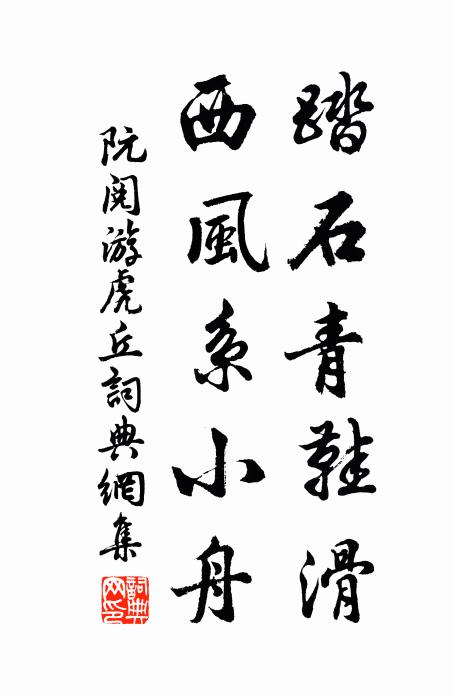 踏石青鞋滑
西風系小舟
阮閱游虎丘詞典網集
詞典網印